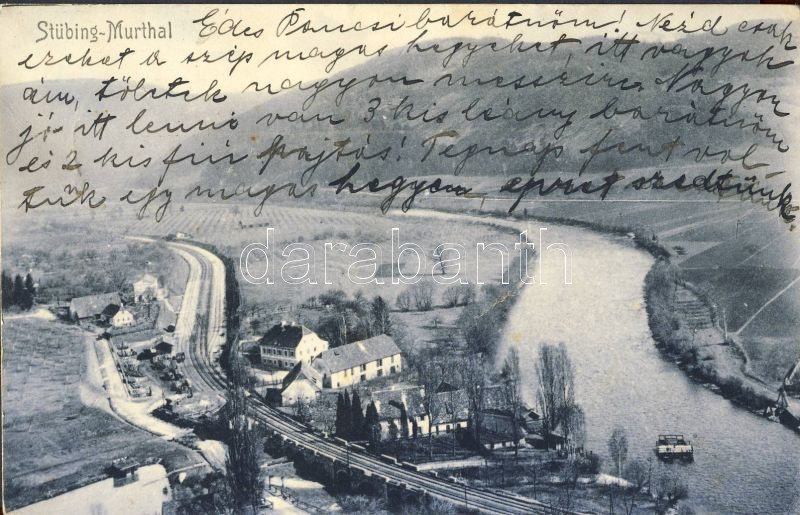 Stübing-Murthal
Édes Pancsi barátnőm! Nézd csak
ezeket a szép magas hegyeket, itt vagyok
ám, töletek nagyon messzire. Nagyon
jó itt lenni van 3 kis leány barátnőm
és 2 kis fiú pajtás! Tegnap fent vol-
tunk egy magas hegyen, epret szedtünk.
darabanth